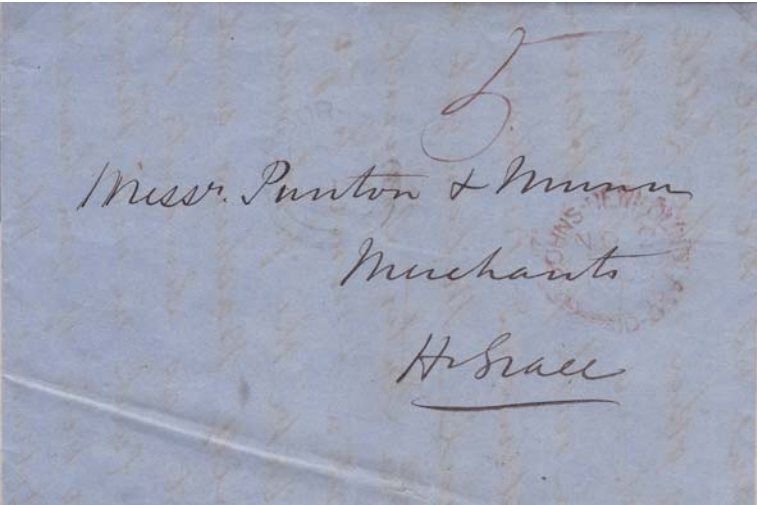 5
Messr. Punton & Munn
Merchants
Hr Grace
ST JOHNS NEWFOUNDLAND